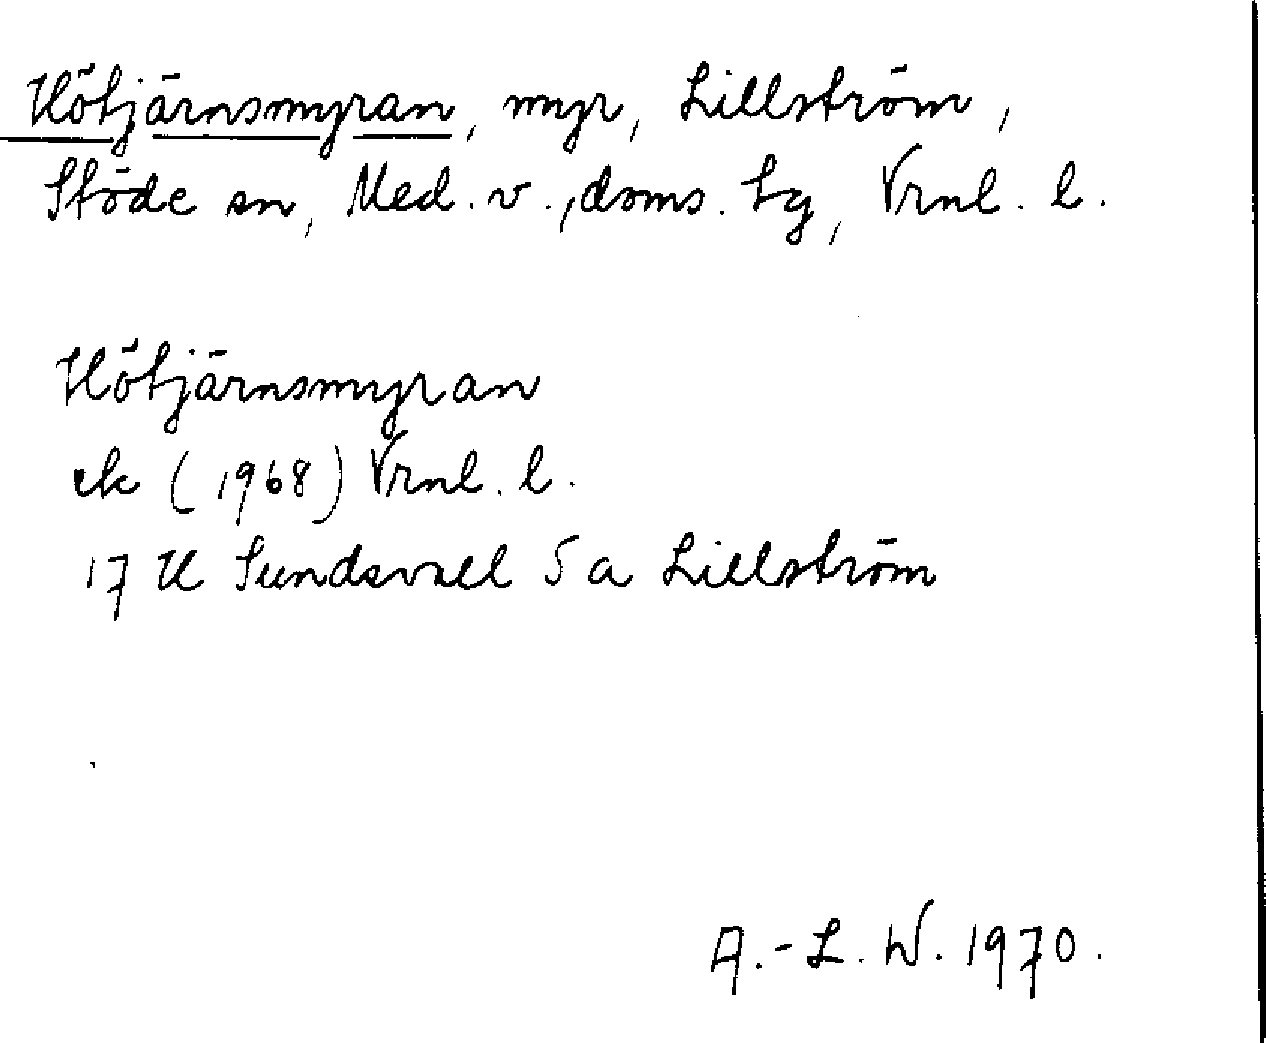 Hötjärnsmyran, myr, Lillström,
Stöde sn, Med. v., doms. tg, Vrnl. l.
Hötjärnsmyran
ek (1968) Vrnl. l.
17 H Sundsvall 5 a Lillström
A.-L. W. 1970.